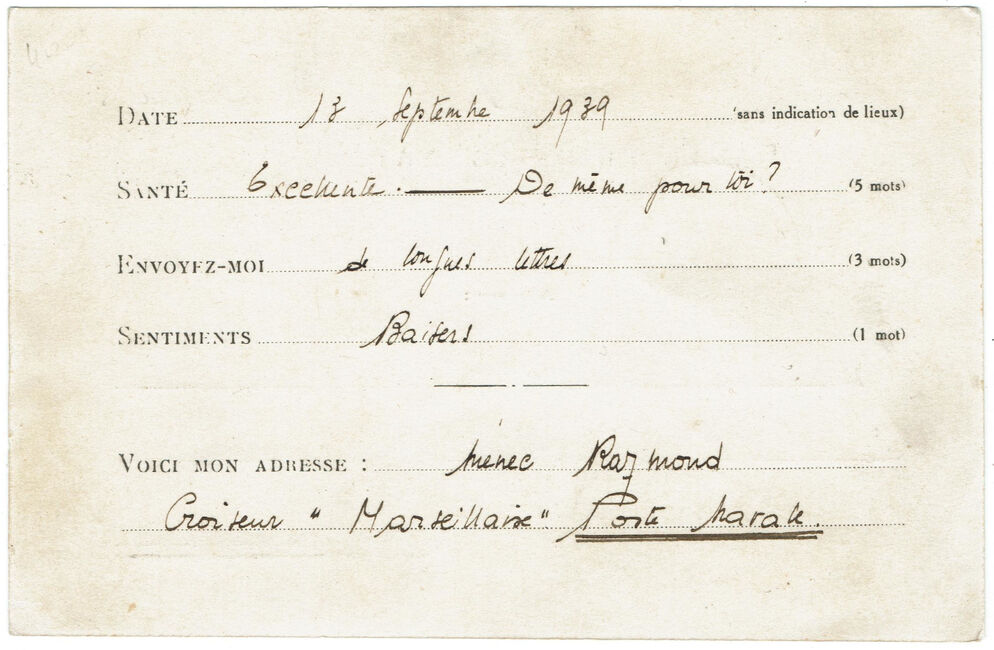 DATE 13 Septembre 1939 (sans indication de lieux)
SANTÉ Excellente. — De même pour toi? (5 mots)
ENVOYEZ-MOI de longues lettres (3 mots)
SENTIMENTS Baisers (1 mot)
VOICI MON ADRESSE : Ménec Raymond
Croiseur "Marseillaise" Poste Navale.